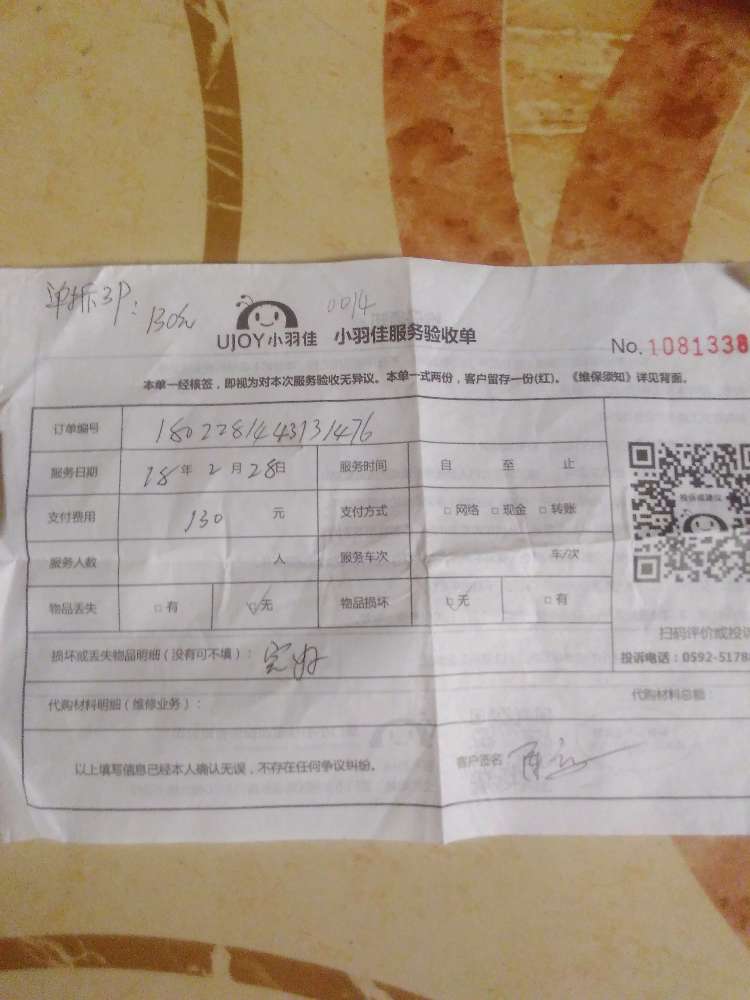 单拆3P：130元
0014
UJOY小羽佳 小羽佳服务验收单
No.1081338
本单一经核签，即视为对本次服务验收无异议。本单一式两份，客户留存一份(红)。《维保须知》详见背面。
订单编号 1802281443131476
服务日期 18年2月28日 服务时间 自 至 止
支付费用 130 元 支付方式 □网络 □现金 □转账
服务人数 人 服务车次 车/次
投诉或建议
物品丢失 □有 ☑无 物品损坏 ☑无 □有
扫码评价或投诉
损坏或丢失物品明细（没有可不填）： 完好
投诉电话：0592-5178
代购材料明细（维修业务）： 代购材料总额
以上填写信息已经本人确认无误，不存在任何争议纠纷。 客户签名